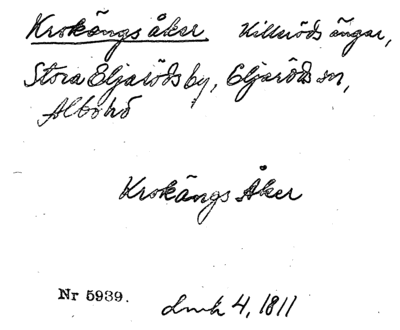 Krokängs åker Killeröds ängar,
Stora Eljaröds by, Eljaröds sn,
Albo hd
Krokängs Åker
Nr 5939. 4, 1811